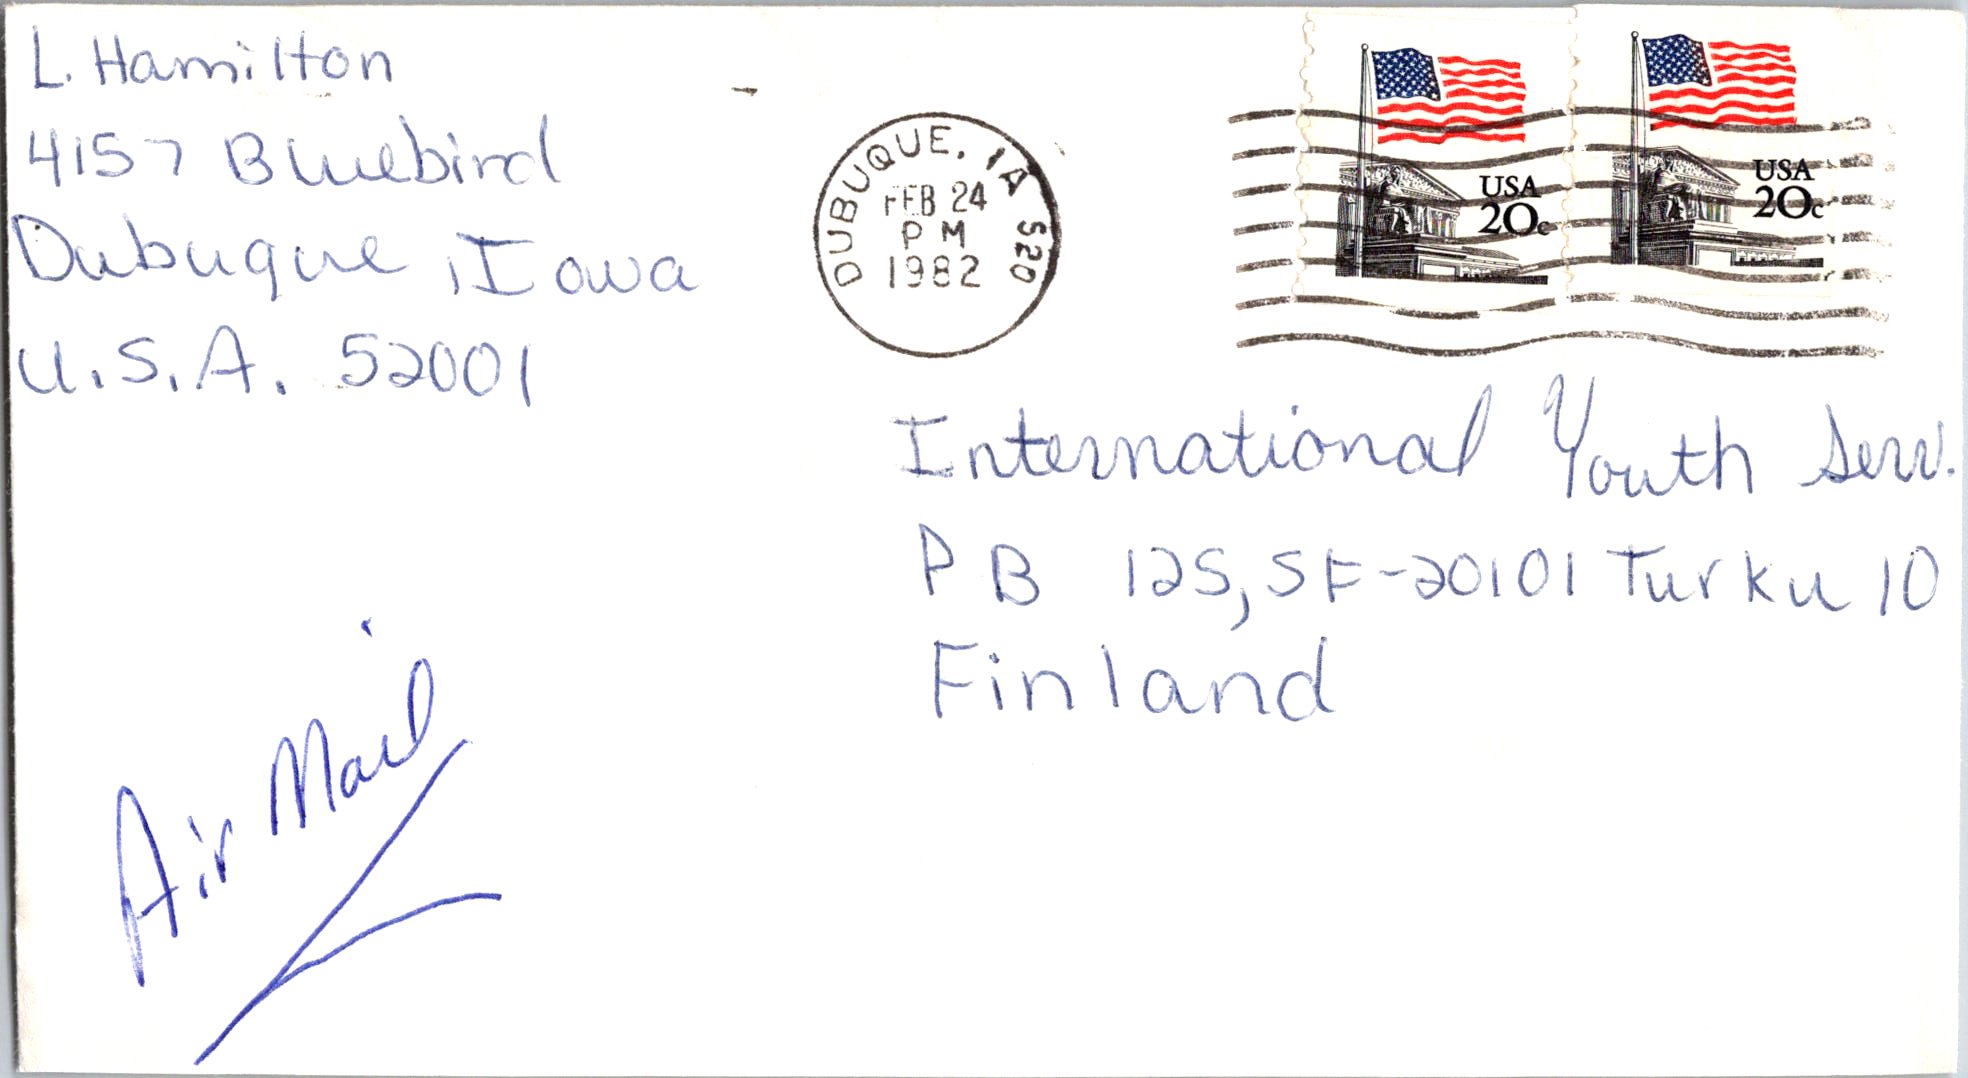 L. Hamilton
4157 Bluebird
Dubuque, Iowa
U.S.A. 52001
DUBUQUE, IA 520
FEB 24
PM
1982
USA
20c
USA
20c
International Youth Serv.
PB 125, SF-20101 Turku 10
Finland
Air Mail